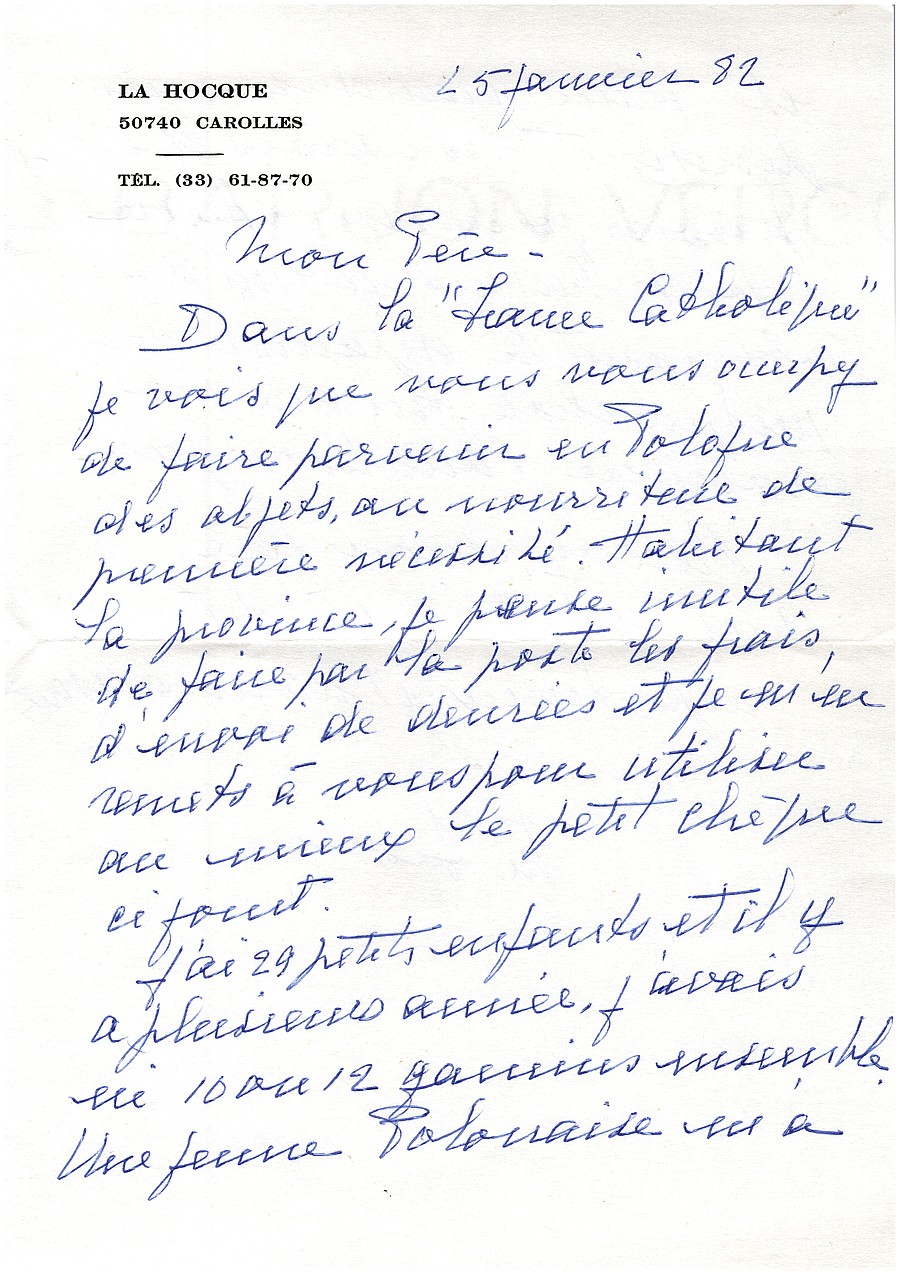 LA HOCQUE
50740 CAROLLES
TÉL. (33) 61-87-70
25 janvier 82
Mon Père -
Dans la "France Catholique"
je vois que vous vous occupez
de faire parvenir en Pologne
des objets, ou nourriture de
première nécessité. Habitant
la province, je pense inutile
de faire par la poste les frais,
d'envoi de denrées et je m'en
remets à vous pour utiliser
au mieux le petit chèque
ci joint.
J'ai 29 petits enfants et il y
a plusieurs année, j'avais
ici 10 ou 12 gamins ensemble.
Une jeune Polonaise m'a